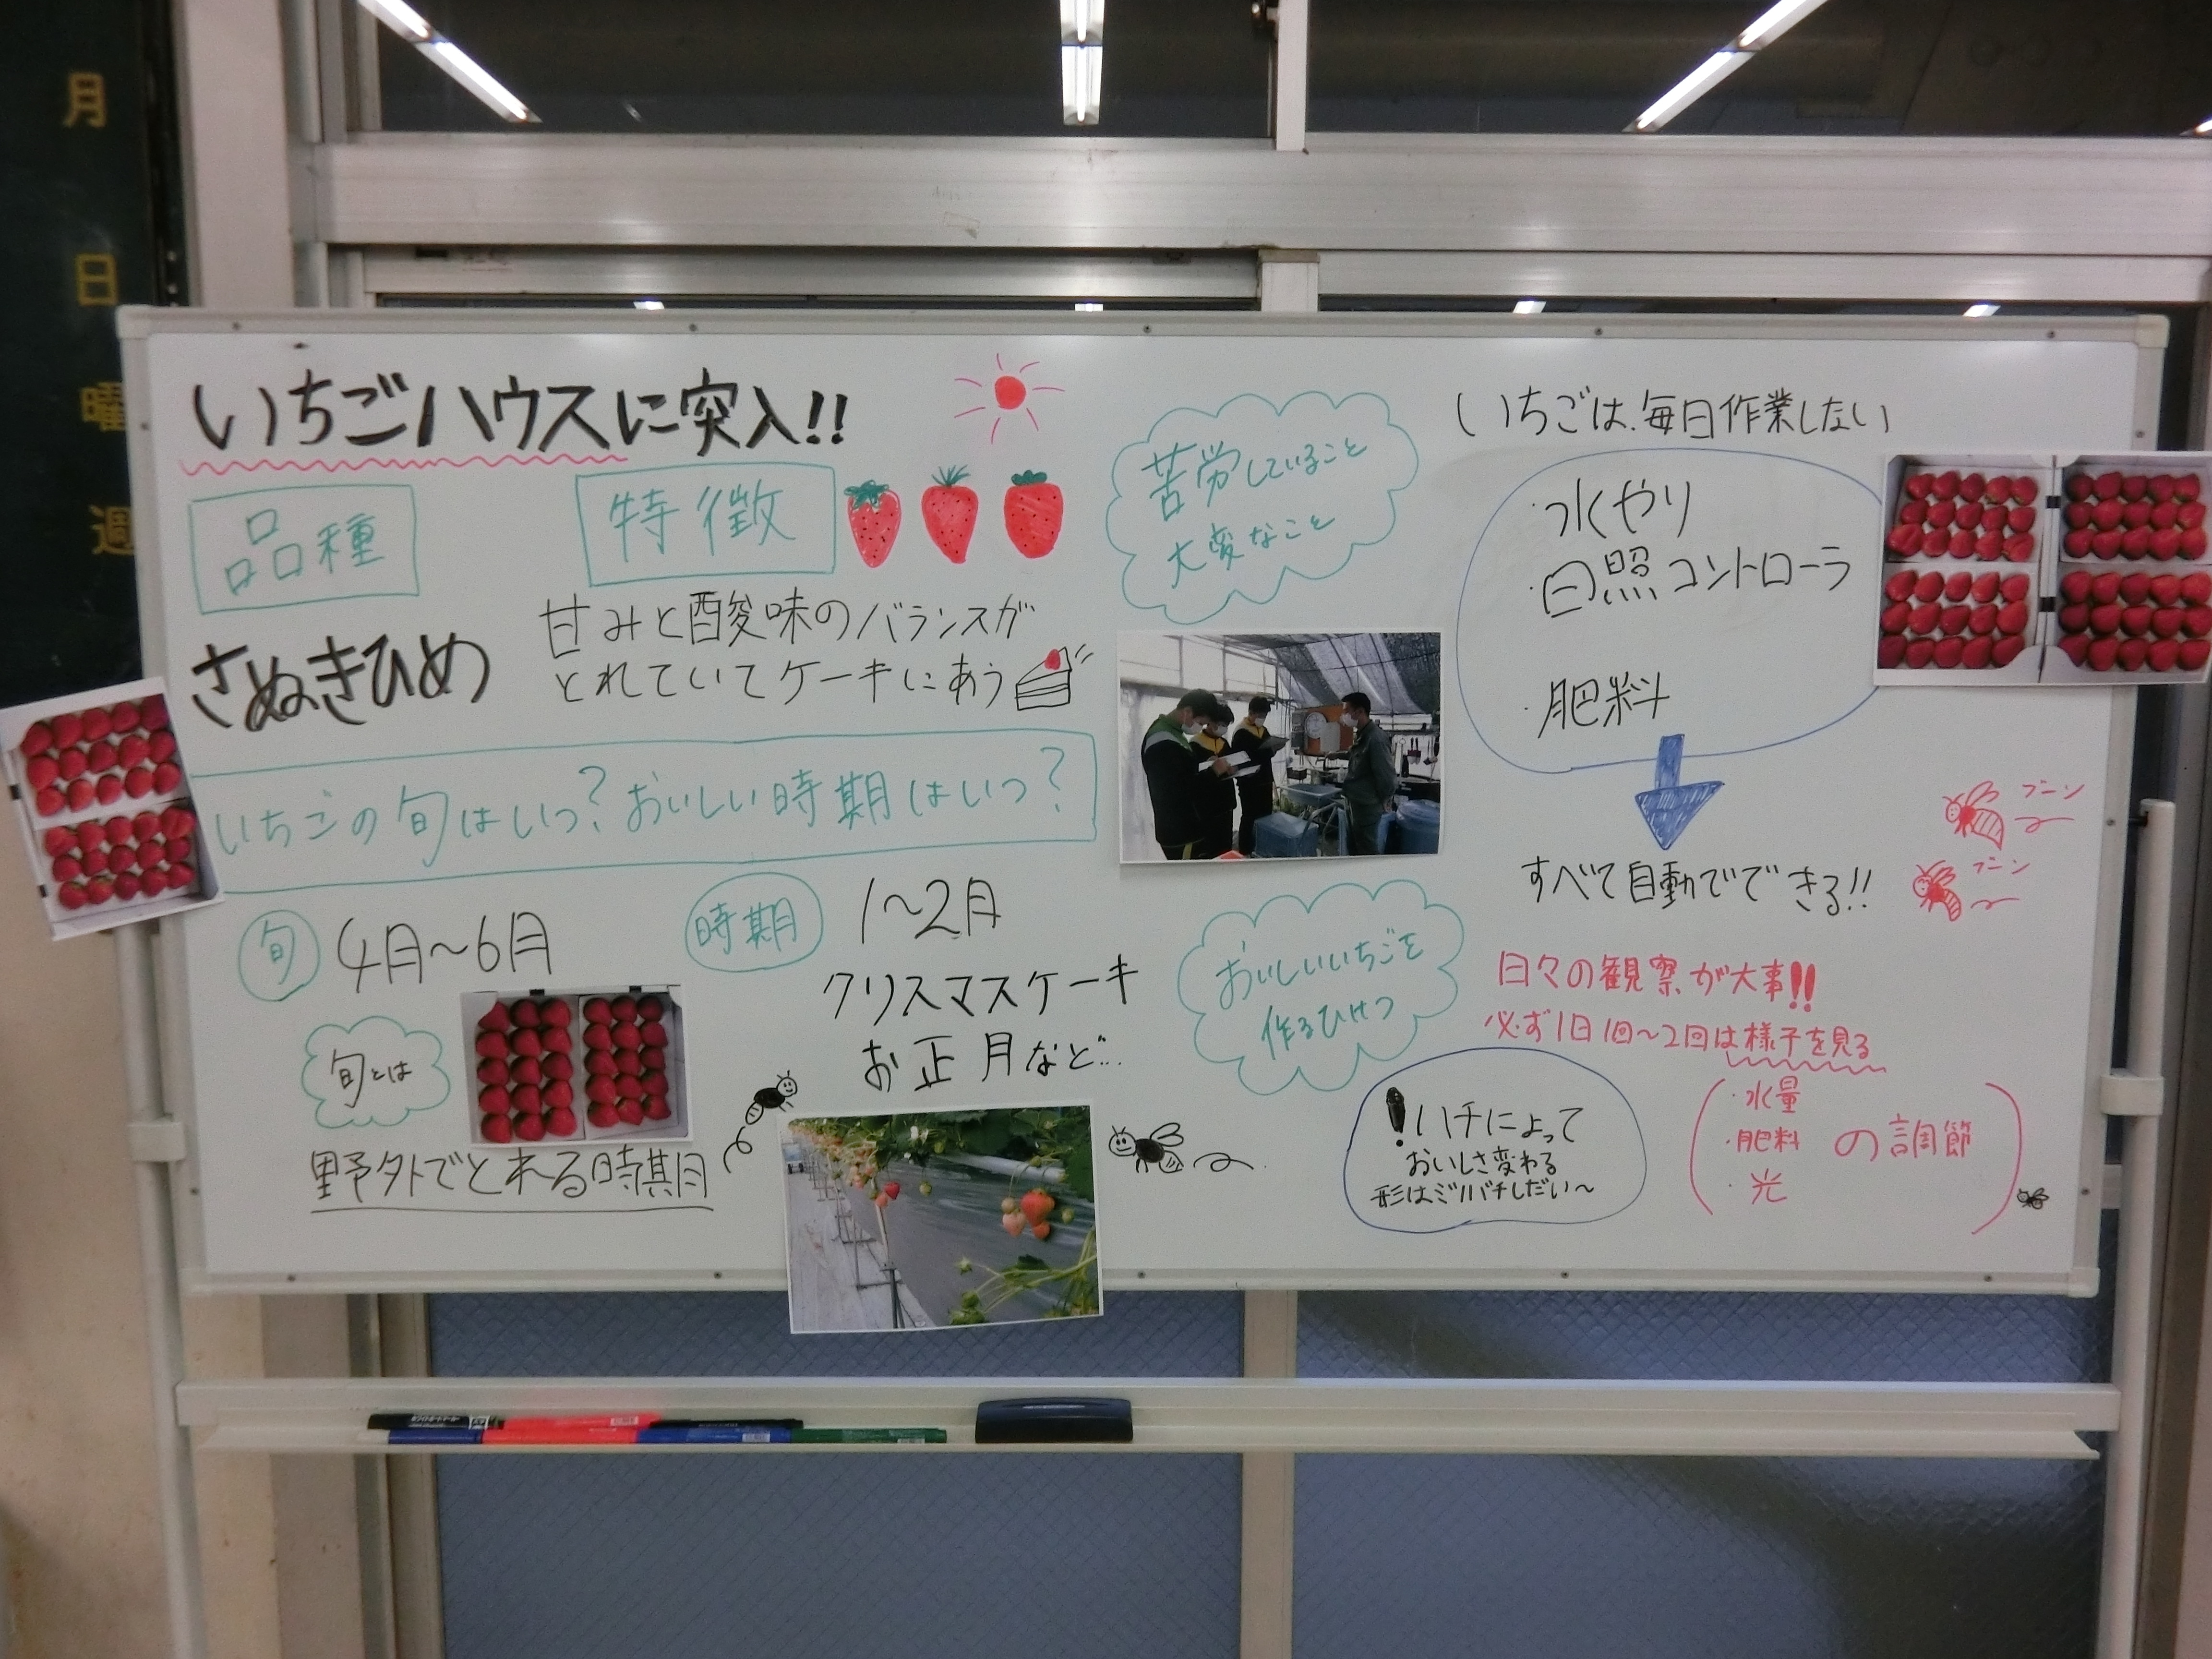 月
日
曜
週
いちごハウスに突入!!
品種
特徴
さぬきひめ
甘みと酸味のバランスが
とれていてケーキにあう
いちごの旬はいつ?おいしい時期はいつ?
旬
4月～6月
時期
1～2月
クリスマスケーキ
お正月など…
旬とは
野外でとれる時期
苦労していること
大変なこと
いちごは、毎日作業しない
・水やり
・日照コントローラ
・肥料
すべて自動でできる!!
ブーン
ブーン
おいしいいちごを
作るひけつ
日々の観察が大事!!
必ず1日1回～2回は様子を見る
・水量
・肥料
・光
の調節
!ハチによって
おいしさ変わる
形はミツバチしだい～